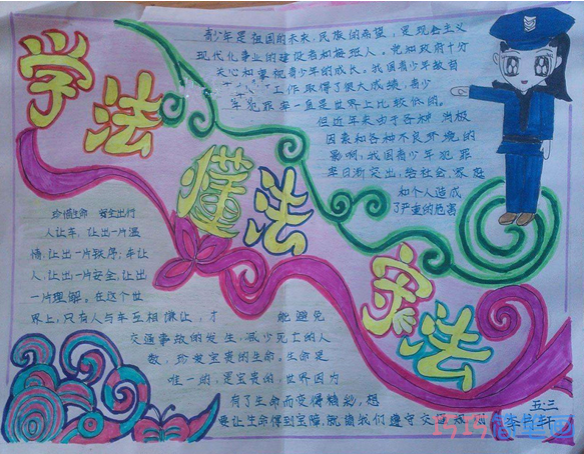 学法
懂法
守法
青少年是祖国的未来,民族的希望,是现代主义
现代化事业的建设者和接班人。党和政府十分
关心和重视青少年的成长。我国青少年教育
工作取得了很大成绩,青少
年犯罪率一直是世界上比较低的。
但近年来由于各种消极
因素和各种不良环境的
影响,我国青少年犯罪
率日渐突出,给社会、家庭
和个人造成
了严重的危害
珍惜生命 安全出行
人让车,让出一片温
情;让出一片秩序;车让
人,让出一片安全;让出
一片理解。在这个世
界上,只有人与车互相谦让,才 能避免
交通事故的发生,减少死亡的人
数,珍爱宝贵的生命,生命是
唯一的,是宝贵的,世界因为
有了生命而变得精彩,想
要让生命得到宝障,就请我们遵守交
五.三